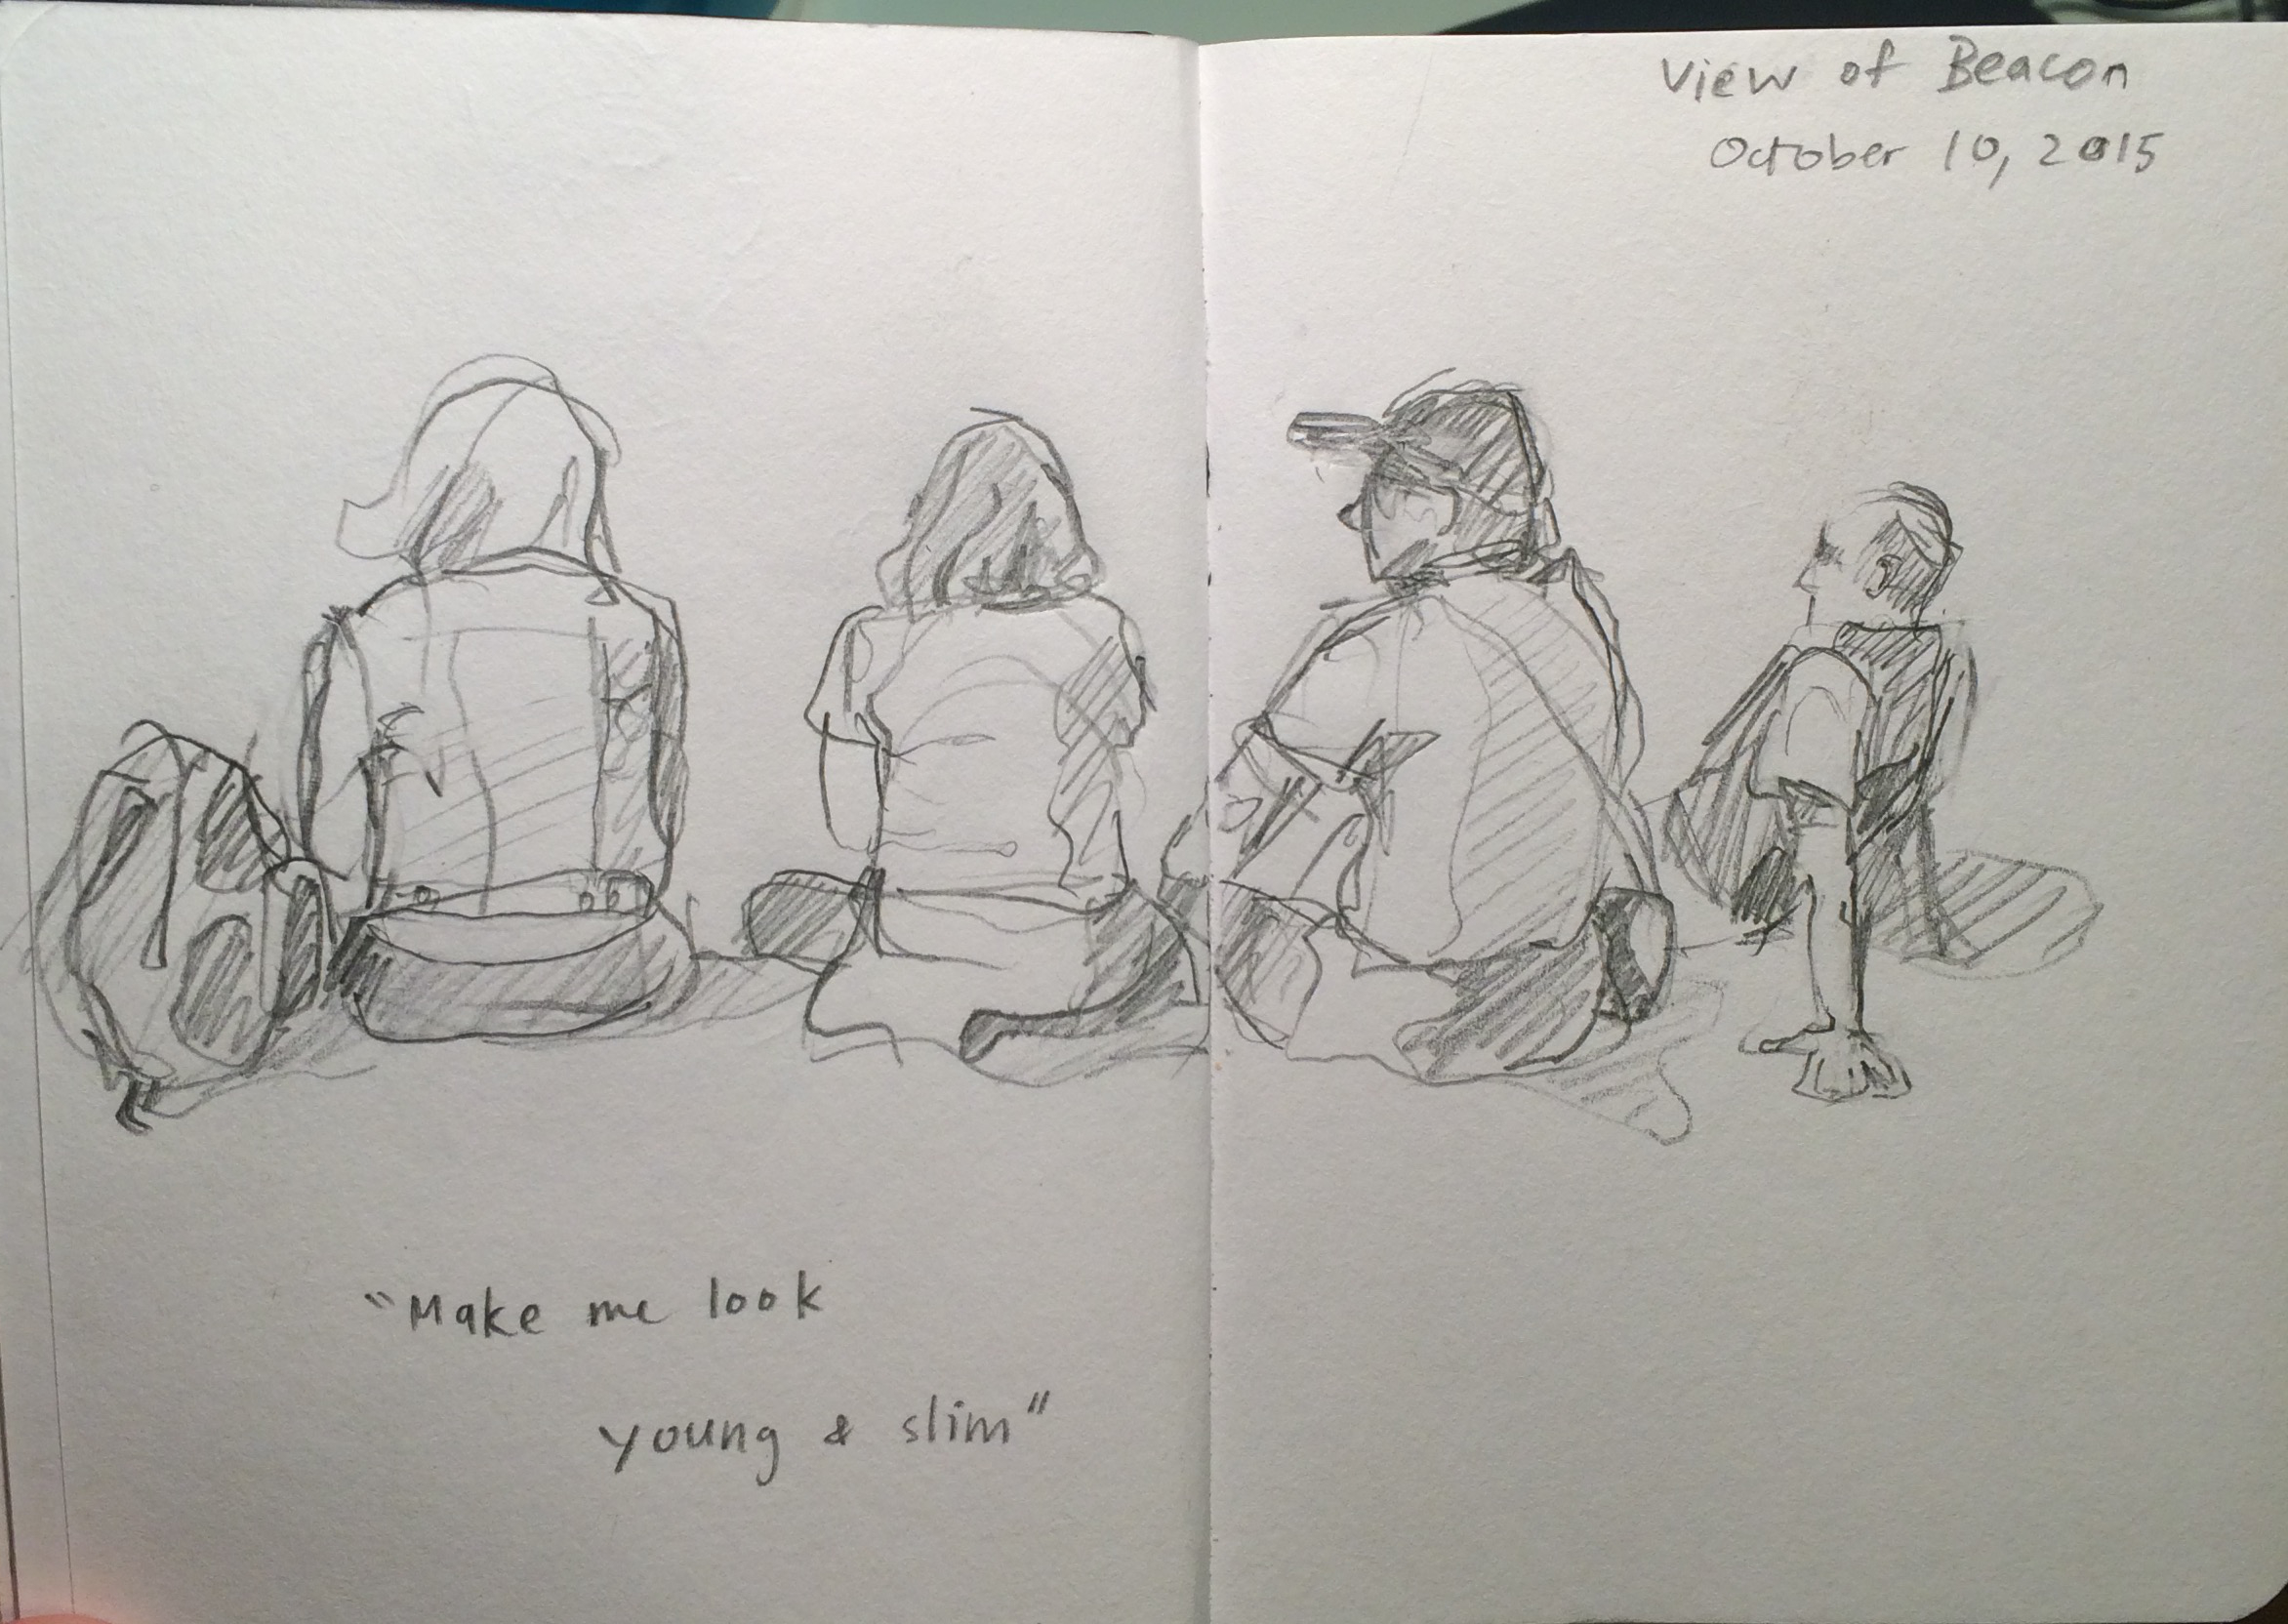 View of Beacon
October 10, 2015
"Make me look
young & slim"